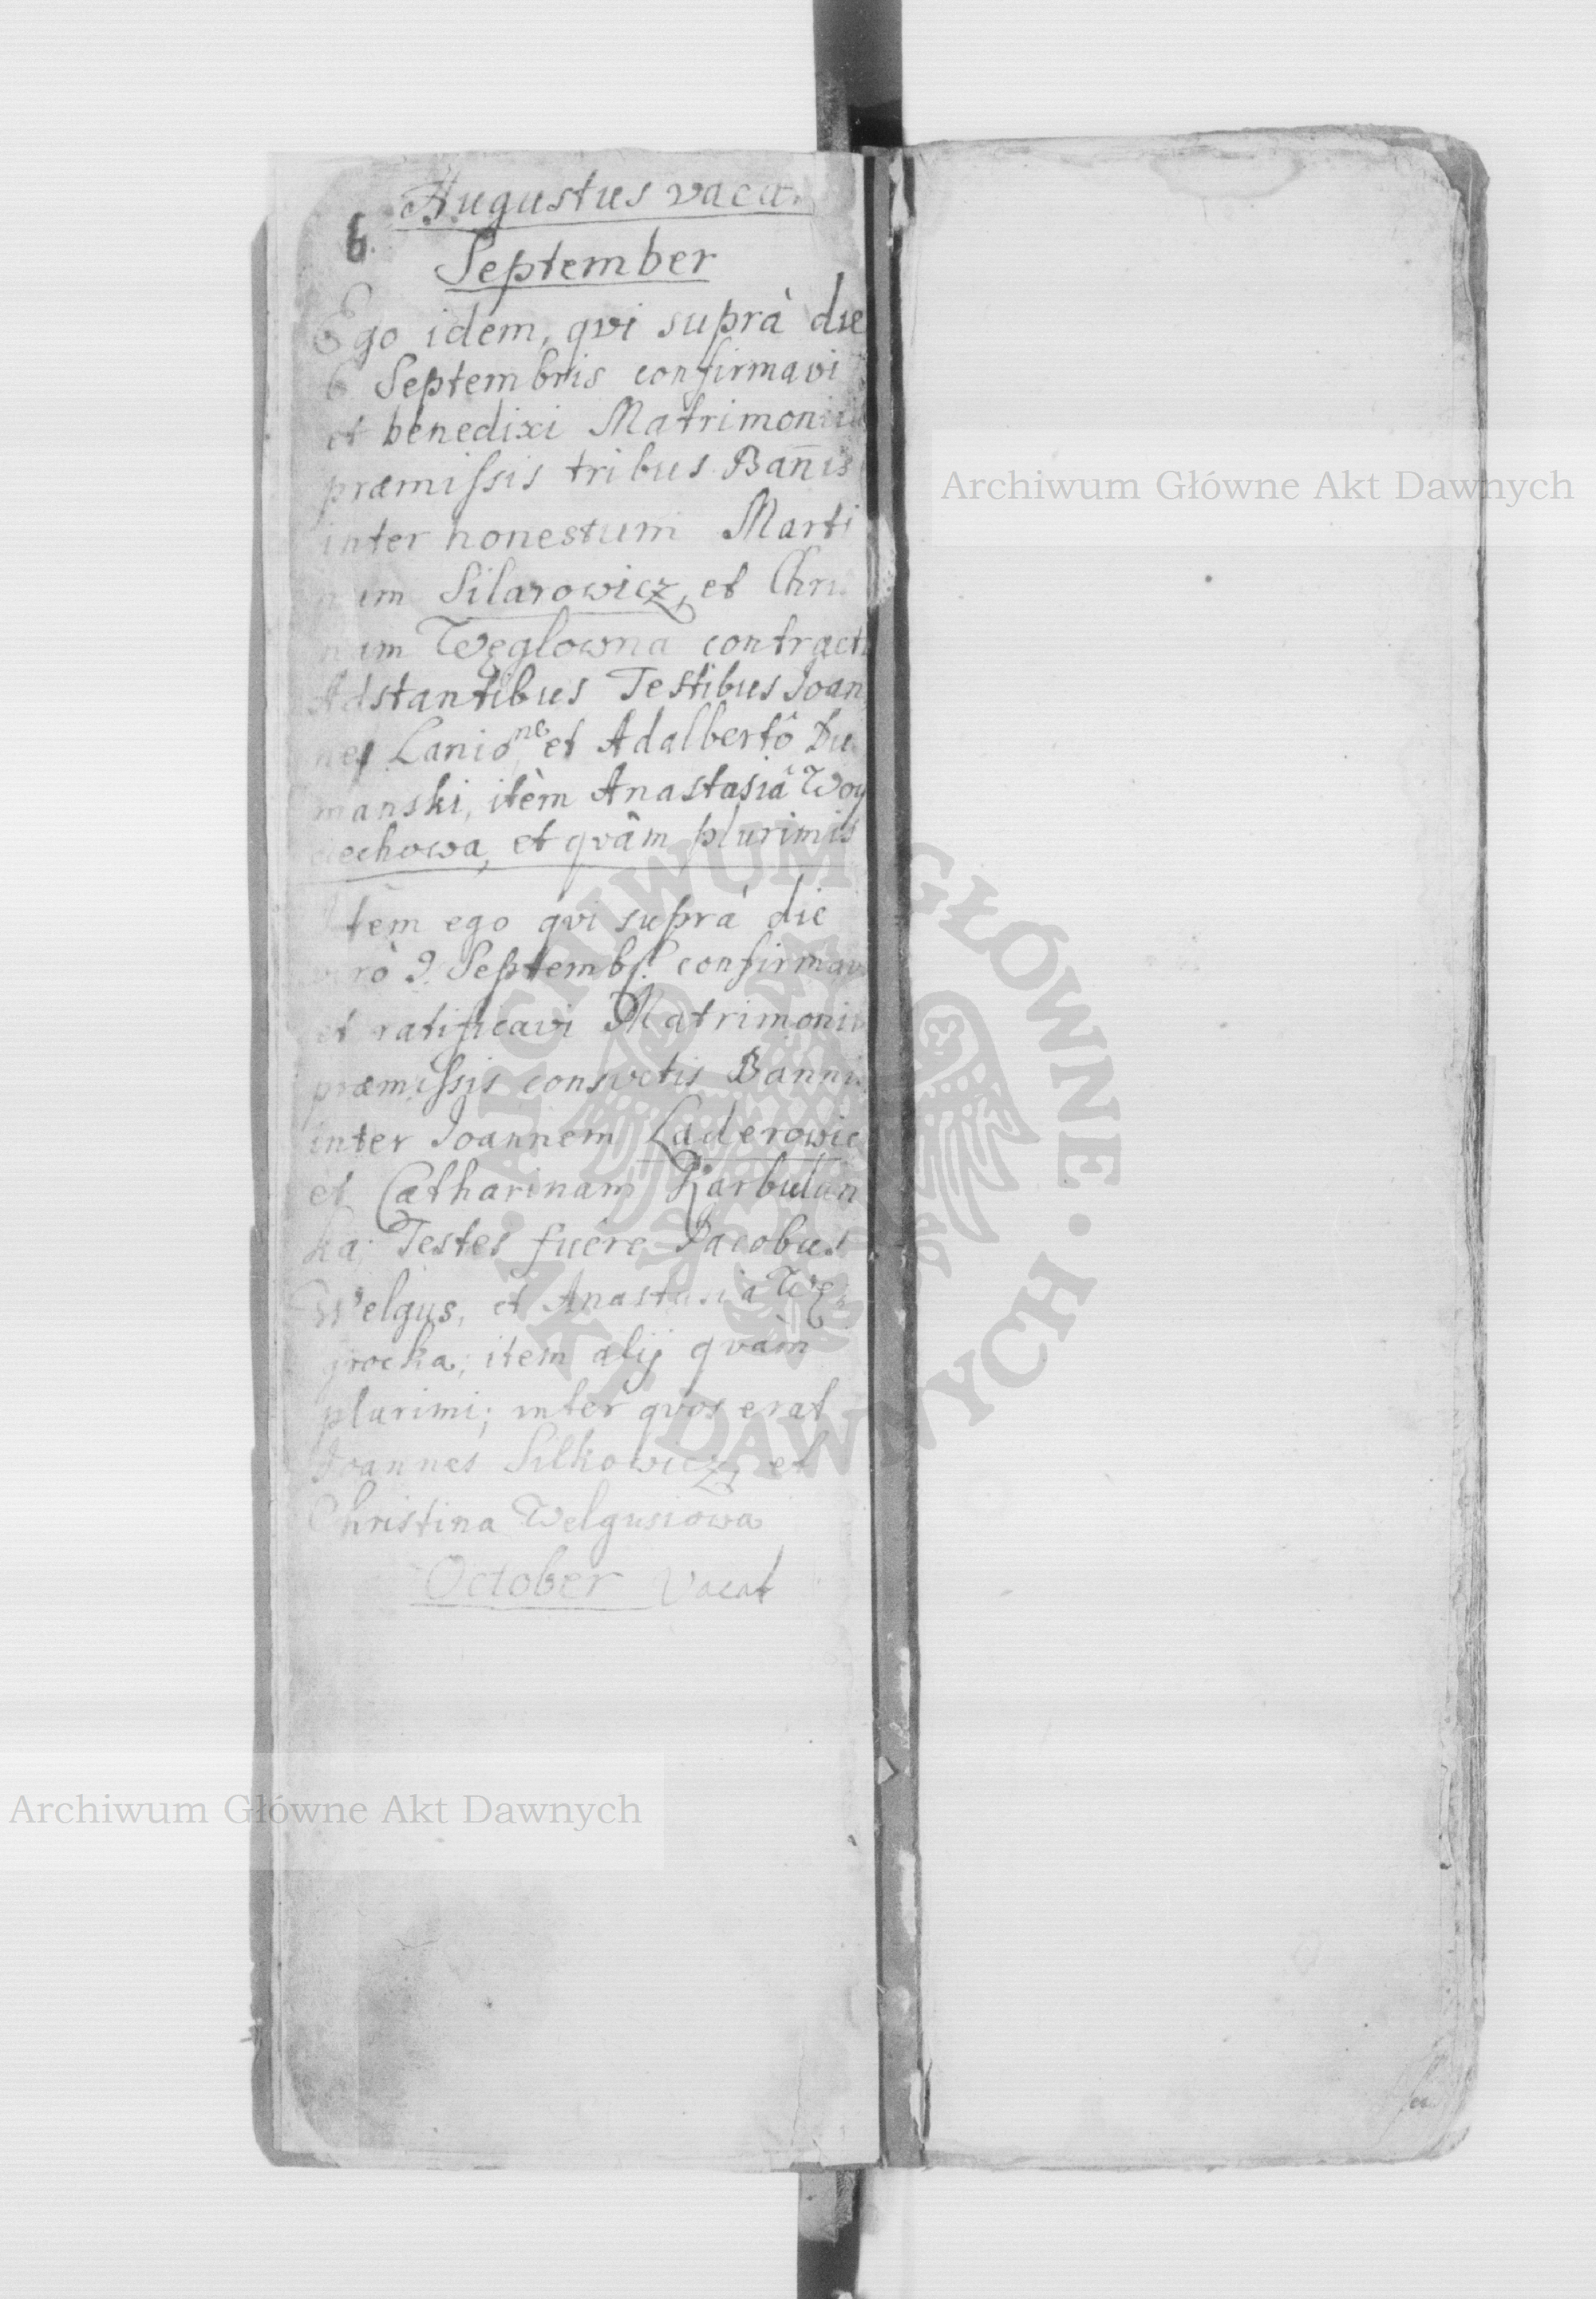 Augustus vaca
6.
September
Ego idem, qvi suprà die
6 Septembris confirmavi
et benedixi Matrimoniu
præmissis tribus Bañis
inter honestum Marti
num Silarowicz, et Chri
nam Węglowna contract
Adstantibus Testibus Joan
ne Lanione et Adalbertô Du
manski, itèm Anastasiâ Woy
ciechowa, et qvâm plurimis
Item ego qvi suprà die
verò 9 Septembr. confirmav
et ratificavi Matrimoniu
præmissis consvetis Banni
inter Joannem Laderowic
et Catharinam Karbulan
ka; Testes fuêre Jacobus
Welgus, et Anastasia Wę
grocka; item alij qvàm
plurimi; inter qvos erat
Joannes Silkowicz, et
Christina Welgusiowa
October Vacat
Archiwum Główne Akt Dawnych
Archiwum Główne Akt Dawnych
ARCHIWUM GŁÓWNE · AKT DAWNYCH ·